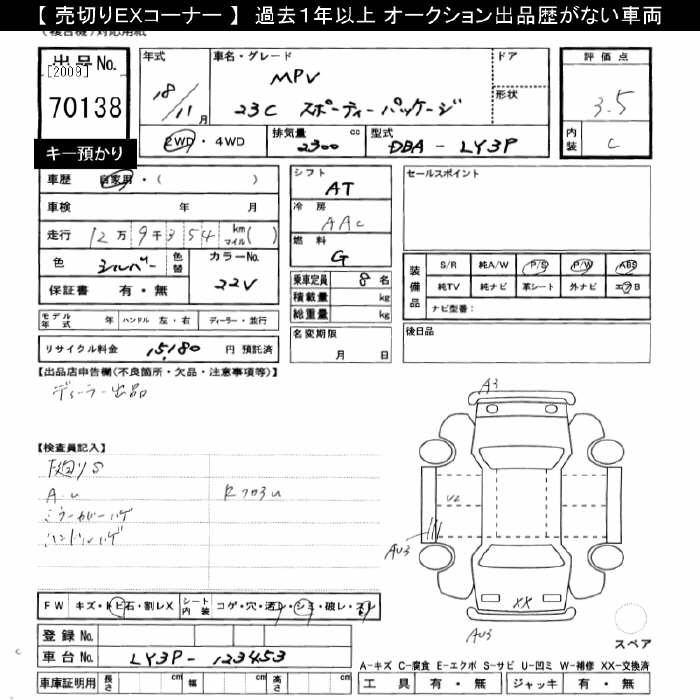 【 売切りEXコーナー 】 過去1年以上 オークション出品歴がない車両
出品No.
[2009]
70138
キー預かり
年式
18/11月
車名・グレード
MPV
23C スポーティーパッケージ
ドア
形状
2WD・4WD
排気量 2300 cc
型式 DBA - LY3P
評価点
3.5
内装 C
車歴 自家用・( )
車検 年 月
走行 12万9千354 km マイル( )
色 シルバー 色替
カラーNo. 22V
保証書 有・無
モデル年式 年 ハンドル 左・右 ディーラー・並行
リサイクル料金 15,180 円 預託済
シフト AT
冷房 AAC
燃料 G
乗車定員 8 名
積載量 kg
総重量 kg
名変期限
月 日
セールスポイント
装備品
S/R 純A/W P/S P/W ABS
純TV 純ナビ 革シート 外ナビ エアB
ナビ型番:
後日品
【出品店申告欄(不良箇所・欠品・注意事項等)】
ディーラー出品
【検査員記入】
下廻りS
A.U
ミラーカバーハゲ
ハンドルハゲ
A3
U2
AU3
XX
AU3
スペア
FW キズ・トビ石・割レX シート内装 コゲ・穴・汚レ・シミ・破レ・スレ
登録No.
車台No. LY3P-123453
車庫証明用 長さ cm 幅 cm 高さ cm
A-キズ C-腐食 E-エクボ S-サビ U-凹ミ W-補修 XX-交換済
工具 有・無 ジャッキ 有・無